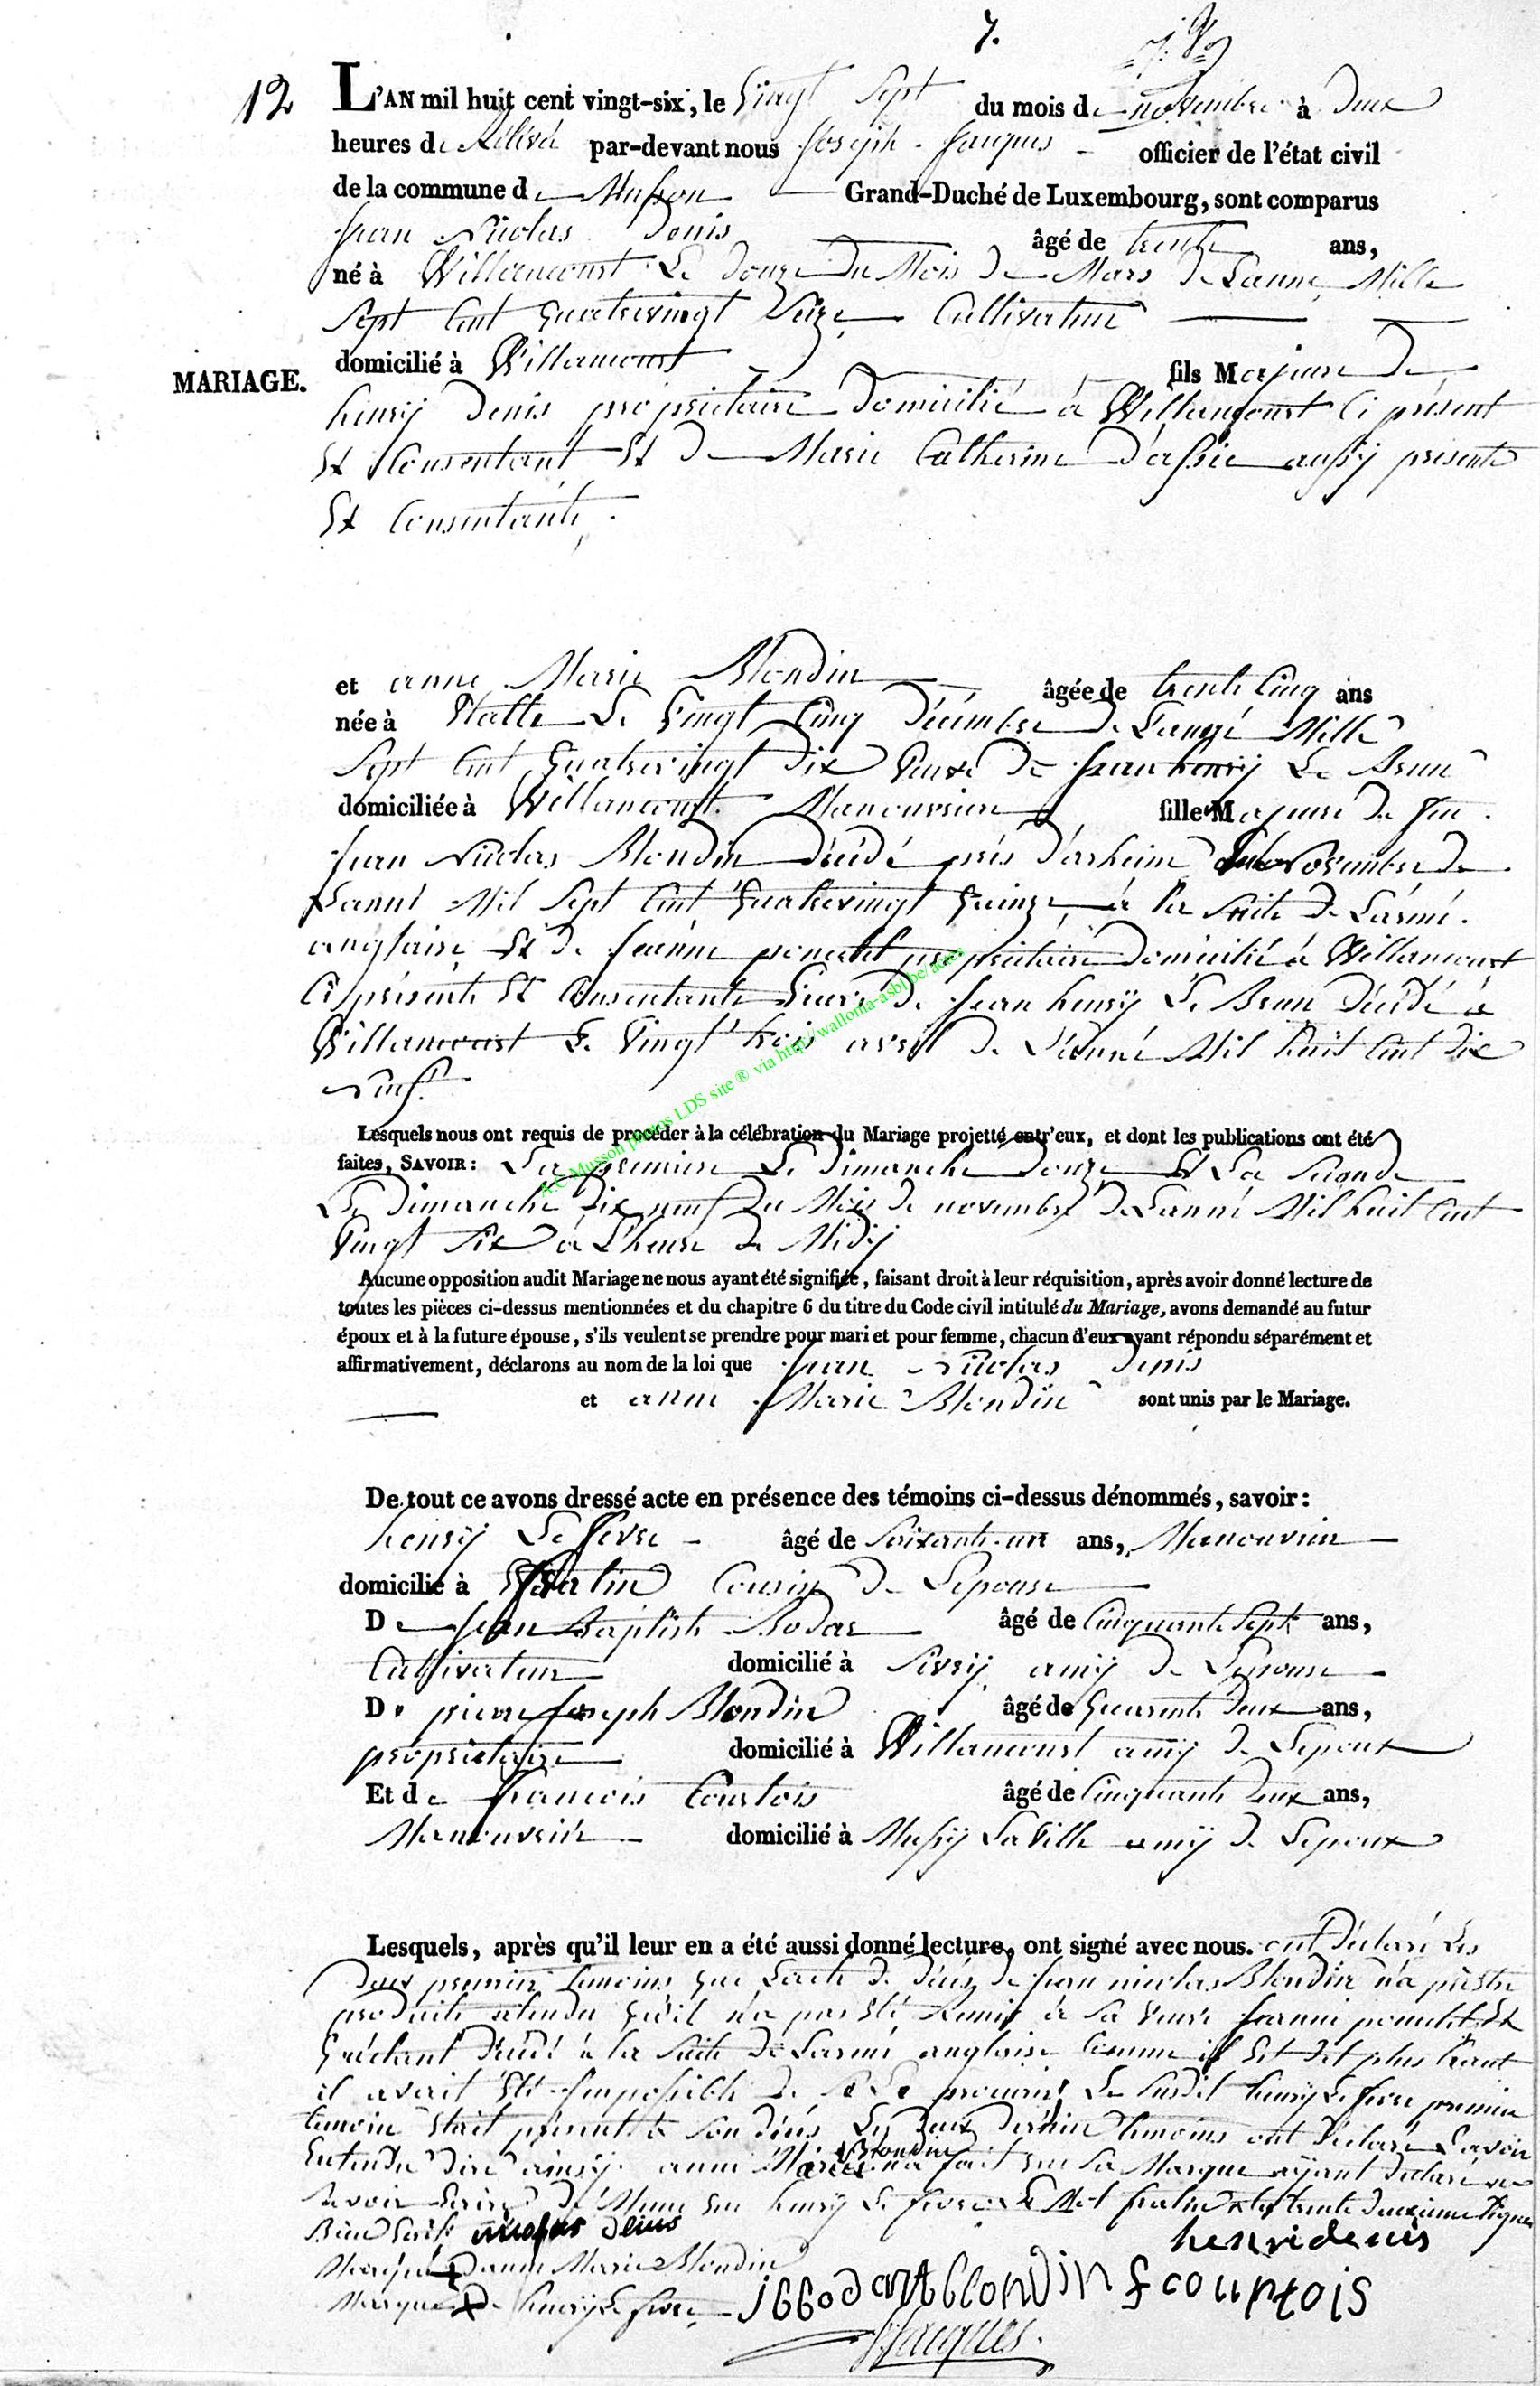 7.
12 L'AN mil huit cent vingt-six, le Vingt Sept du mois de novembre à Deux
heures de Relevé par-devant nous Joseph Jacques officier de l'état civil
de la commune de Musson Grand-Duché de Luxembourg, sont comparus
Jean Nicolas Denis âgé de trente ans,
né à Willancourt Le Douze Du Mois De Mars De L'année Mille
Sept Cent Quatrevingt Seize Cultivateur
MARIAGE. domicilié à Willancourt fils Majeure De
henrÿ Denis propriétaire Domicilié à Willancourt Ci présent
Et Consentant Et De Marie Catherine aussÿ présente
Et Consentante,
et anne Marie Blondin âgée de trente Cinq ans
née à Halle Le Vingt Cinq Décembre De L'année Mille
Sept Cent Quatrevingt Dix Veuve De Jean henrÿ Le Brun
domiciliée à Willancourt Manouvriere fille Majeure De feu
Jean Nicolas Blondin Décédé près Novembre De
L'anné Mil Sept Cent Quatrevingt Quinze à la Suite De L'armé
anglaise Et De Jeanne propriétaire Domicilié à Willancourt
Ci présente Et Consentante Veuve De Jean henrÿ Le Brun Décédé à
Willancourt Le Vingt trois avril De L'anné Mil huit Cent Dix
neuf.
Lesquels nous ont requis de procéder à la célébration du Mariage projetté entr'eux, et dont les publications ont été
faites, SAVOIR: La premiere Le Dimanche Douze Et La Seconde
Le Dimanche Dix neuf Du Mois De novembre De L'anné Mil huit Cent
Vingt Six à L'heure De Midÿ
Aucune opposition audit Mariage ne nous ayant été signifiée, faisant droit à leur réquisition, après avoir donné lecture de
toutes les pièces ci-dessus mentionnées et du chapitre 6 du titre du Code civil intitulé du Mariage, avons demandé au futur
époux et à la future épouse, s'ils veulent se prendre pour mari et pour femme, chacun d'eux ayant répondu séparément et
affirmativement, déclarons au nom de la loi que Jean Nicolas Denis
et anne Marie Blondin sont unis par le Mariage.
De tout ce avons dressé acte en présence des témoins ci-dessus dénommés, savoir:
henrÿ Le fevre âgé de Soixante un ans, Manouvrier
domicilié à Cousin De L'epouse
De Jean Baptiste Bodar âgé de Cinquante Sept ans,
Cultivateur domicilié à Sivrÿ amÿ De L'epouse
De pierre Joseph Blondin âgé de Quarente Deux ans,
propriétaire domicilié à Willancourt amÿ De L'epoux
Et de francois Courtois âgé de Cinquante Deux ans,
Manouvrier domicilié à Mussÿ La Ville amÿ De L'epoux
Lesquels, après qu'il leur en a été aussi donné lecture, ont signé avec nous. ont Déclaré Les
Deux premier temoins que L'acte De Décés De Jean nicolas Blondin n'a pu être
produite attendu qu'il n'a pas été Remis à Sa Veuve Jeanne Et
Qu'étant Décédé à la Suite De L'armé anglaise Comme il Est Dit plus haut
il avait été Impossible De Se Le procurer Le Susdit henrÿ Le fevre premier
temoin était présent à Son Décés Les Deux Dernier temoins ont Déclaré L'avoir
Entendu Dire ainsÿ. anne Marie Blondin n'a fait que Sa Marque aÿant Déclaré ne
Savoir Ecrire De Meme que henrÿ Le fevre Le Mot trente Deuxieme Ligne
nicolas Denis
henri denis
Marque D'anne Marie Blondin
Marque De henrÿ Le fevre jbbodart blondin f courtois
Jacques
A.C Musson photos LDS site ® via http://walloma-asbl.be/actes